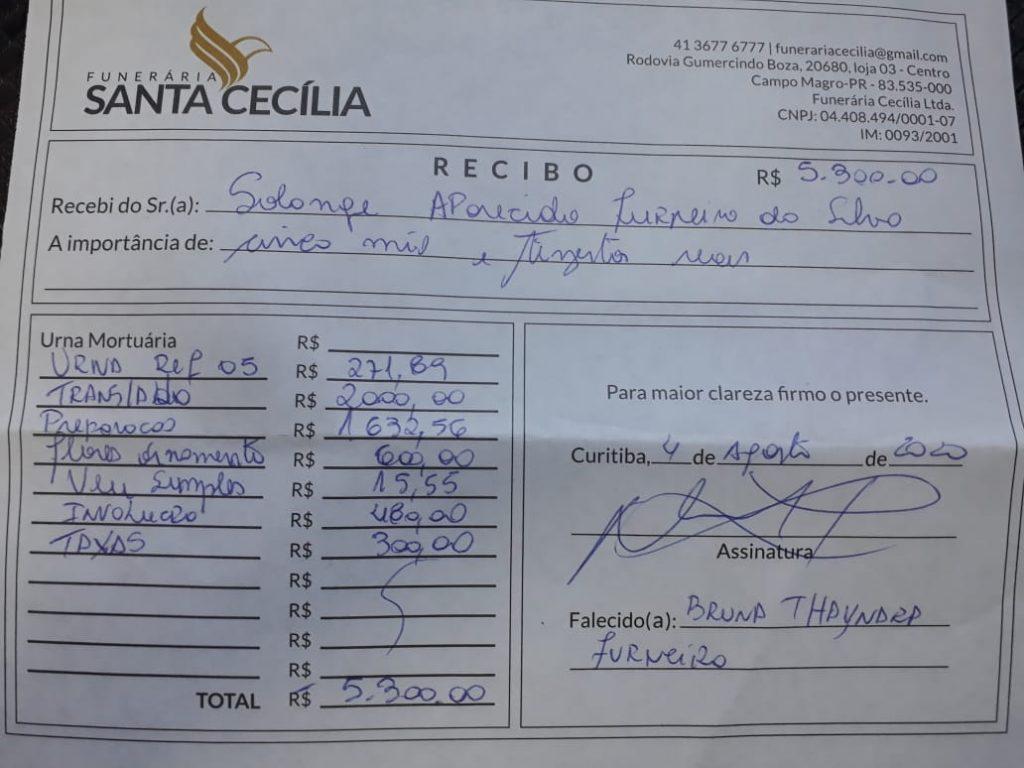 FUNERÁRIA
SANTA CECÍLIA
41 3677 6777 | funerariacecilia@gmail.com
Rodovia Gumercindo Boza, 20680, loja 03 - Centro
Campo Magro-PR - 83.535-000
Funerária Cecília Ltda.
CNPJ: 04.408.494/0001-07
IM: 0093/2001
RECIBO R$ 5.300.00
Recebi do Sr.(a): Solange Aparecida Furneiro da Silva
A importância de: cinco mil e trezentos reais
Urna Mortuária R$
URNA Ref 05 R$ 271,89
TRANSLADO R$ 2000,00
Preparacos R$ 1632,56
Flores Ornamento R$ 600,00
Veu Simples R$ 15,55
INVOLUCRO R$ 480,00
TAXAS R$ 300,00
R$
R$
R$
R$
TOTAL R$ 5.300.00
Para maior clareza firmo o presente.
Curitiba, 4 de Agosto de 2020
Assinatura
Falecido(a): BRUNA THAYNARA
FURNEIRO